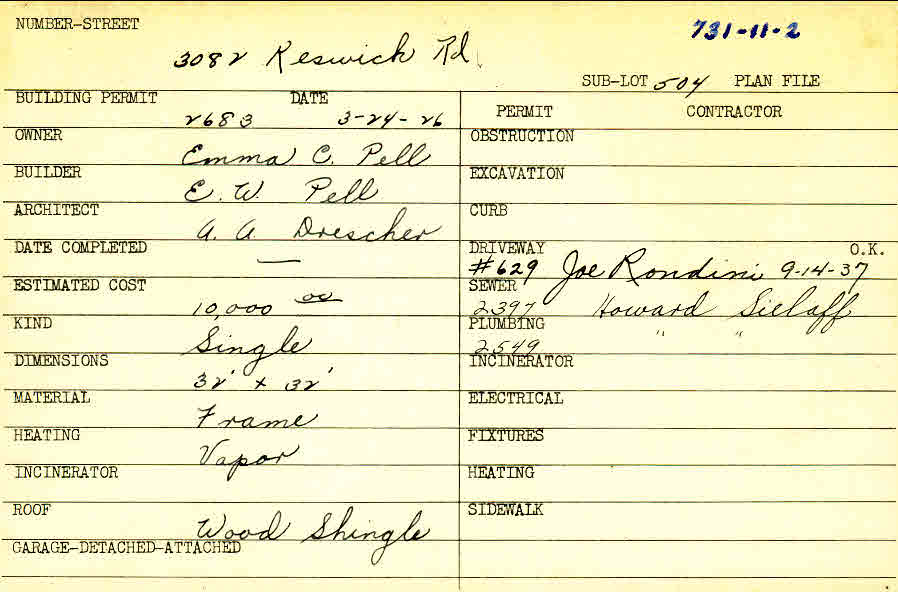 NUMBER-STREET 731-11-2
3082 Keswick Rd
SUB-LOT 504 PLAN FILE
BUILDING PERMIT DATE
2683 3-24-26
OWNER
Emma C. Pell
BUILDER
E. W. Pell
ARCHITECT
A. A. Drescher
DATE COMPLETED
—
ESTIMATED COST
10,000 00
KIND
Single
DIMENSIONS
32' x 32'
MATERIAL
Frame
HEATING
Vapor
INCINERATOR
ROOF
Wood Shingle
GARAGE-DETACHED-ATTACHED
PERMIT CONTRACTOR
OBSTRUCTION
EXCAVATION
CURB
DRIVEWAY O.K.
#629 Joe Rondini 9-14-37
SEWER
2397 Howard Sielaff
PLUMBING " "
2549
INCINERATOR
ELECTRICAL
FIXTURES
HEATING
SIDEWALK